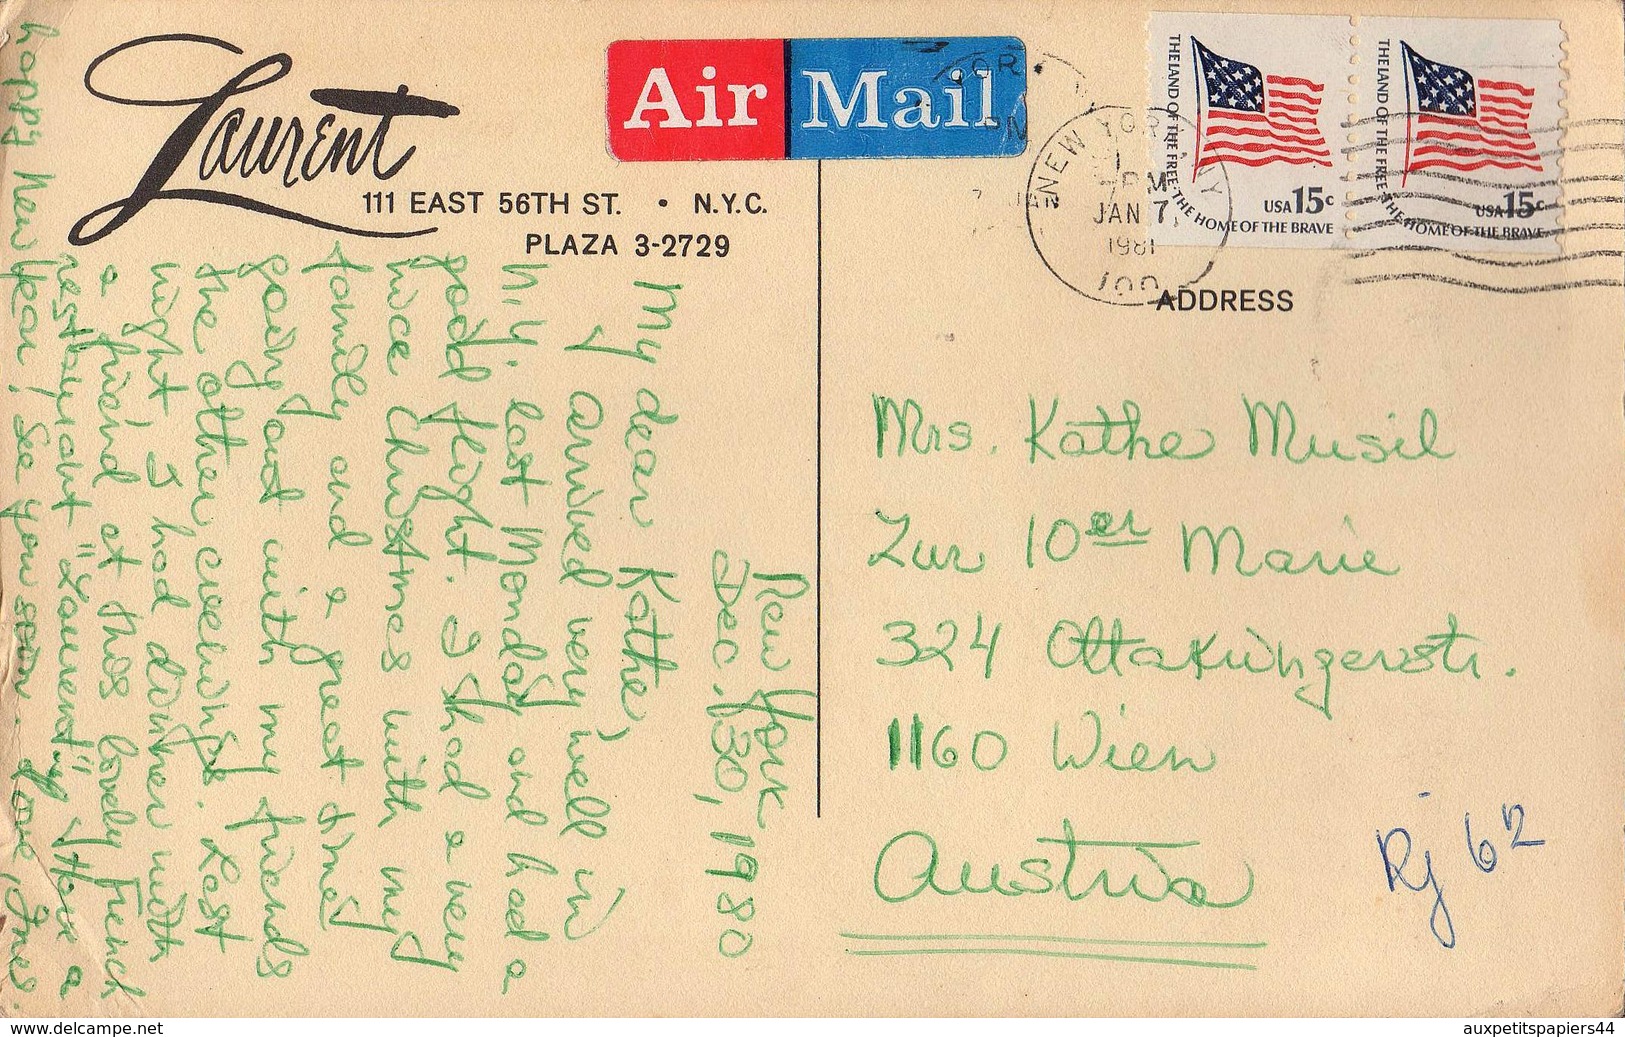 Laurent
111 EAST 56TH ST. • N.Y.C.
PLAZA 3-2729
Air Mail
THE LAND OF THE FREE, THE HOME OF THE BRAVE
USA 15c
THE LAND OF THE FREE, THE HOME OF THE BRAVE
USA 15c
NEW YORK, NY
PM
JAN 7
1981
100
ADDRESS
New York
Dec. 30, 1980
My dear Kathe,
I arrived very well in
N.Y. last Monday and had a
good flight. I had a very
nice Christmas with my
family and a great time
going out with my friends
the other evenings. Last
night I had dinner with
a friend at this lovely French
restaurant "Laurent". Have a
happy New Year! See you soon. Love, Ines.
Mrs. Kathe Musil
Zur 10er Marie
324 Ottakringerstr.
1160 Wien
Austria
Rj 62
www.delcampe.net
auxpetitspapiers44